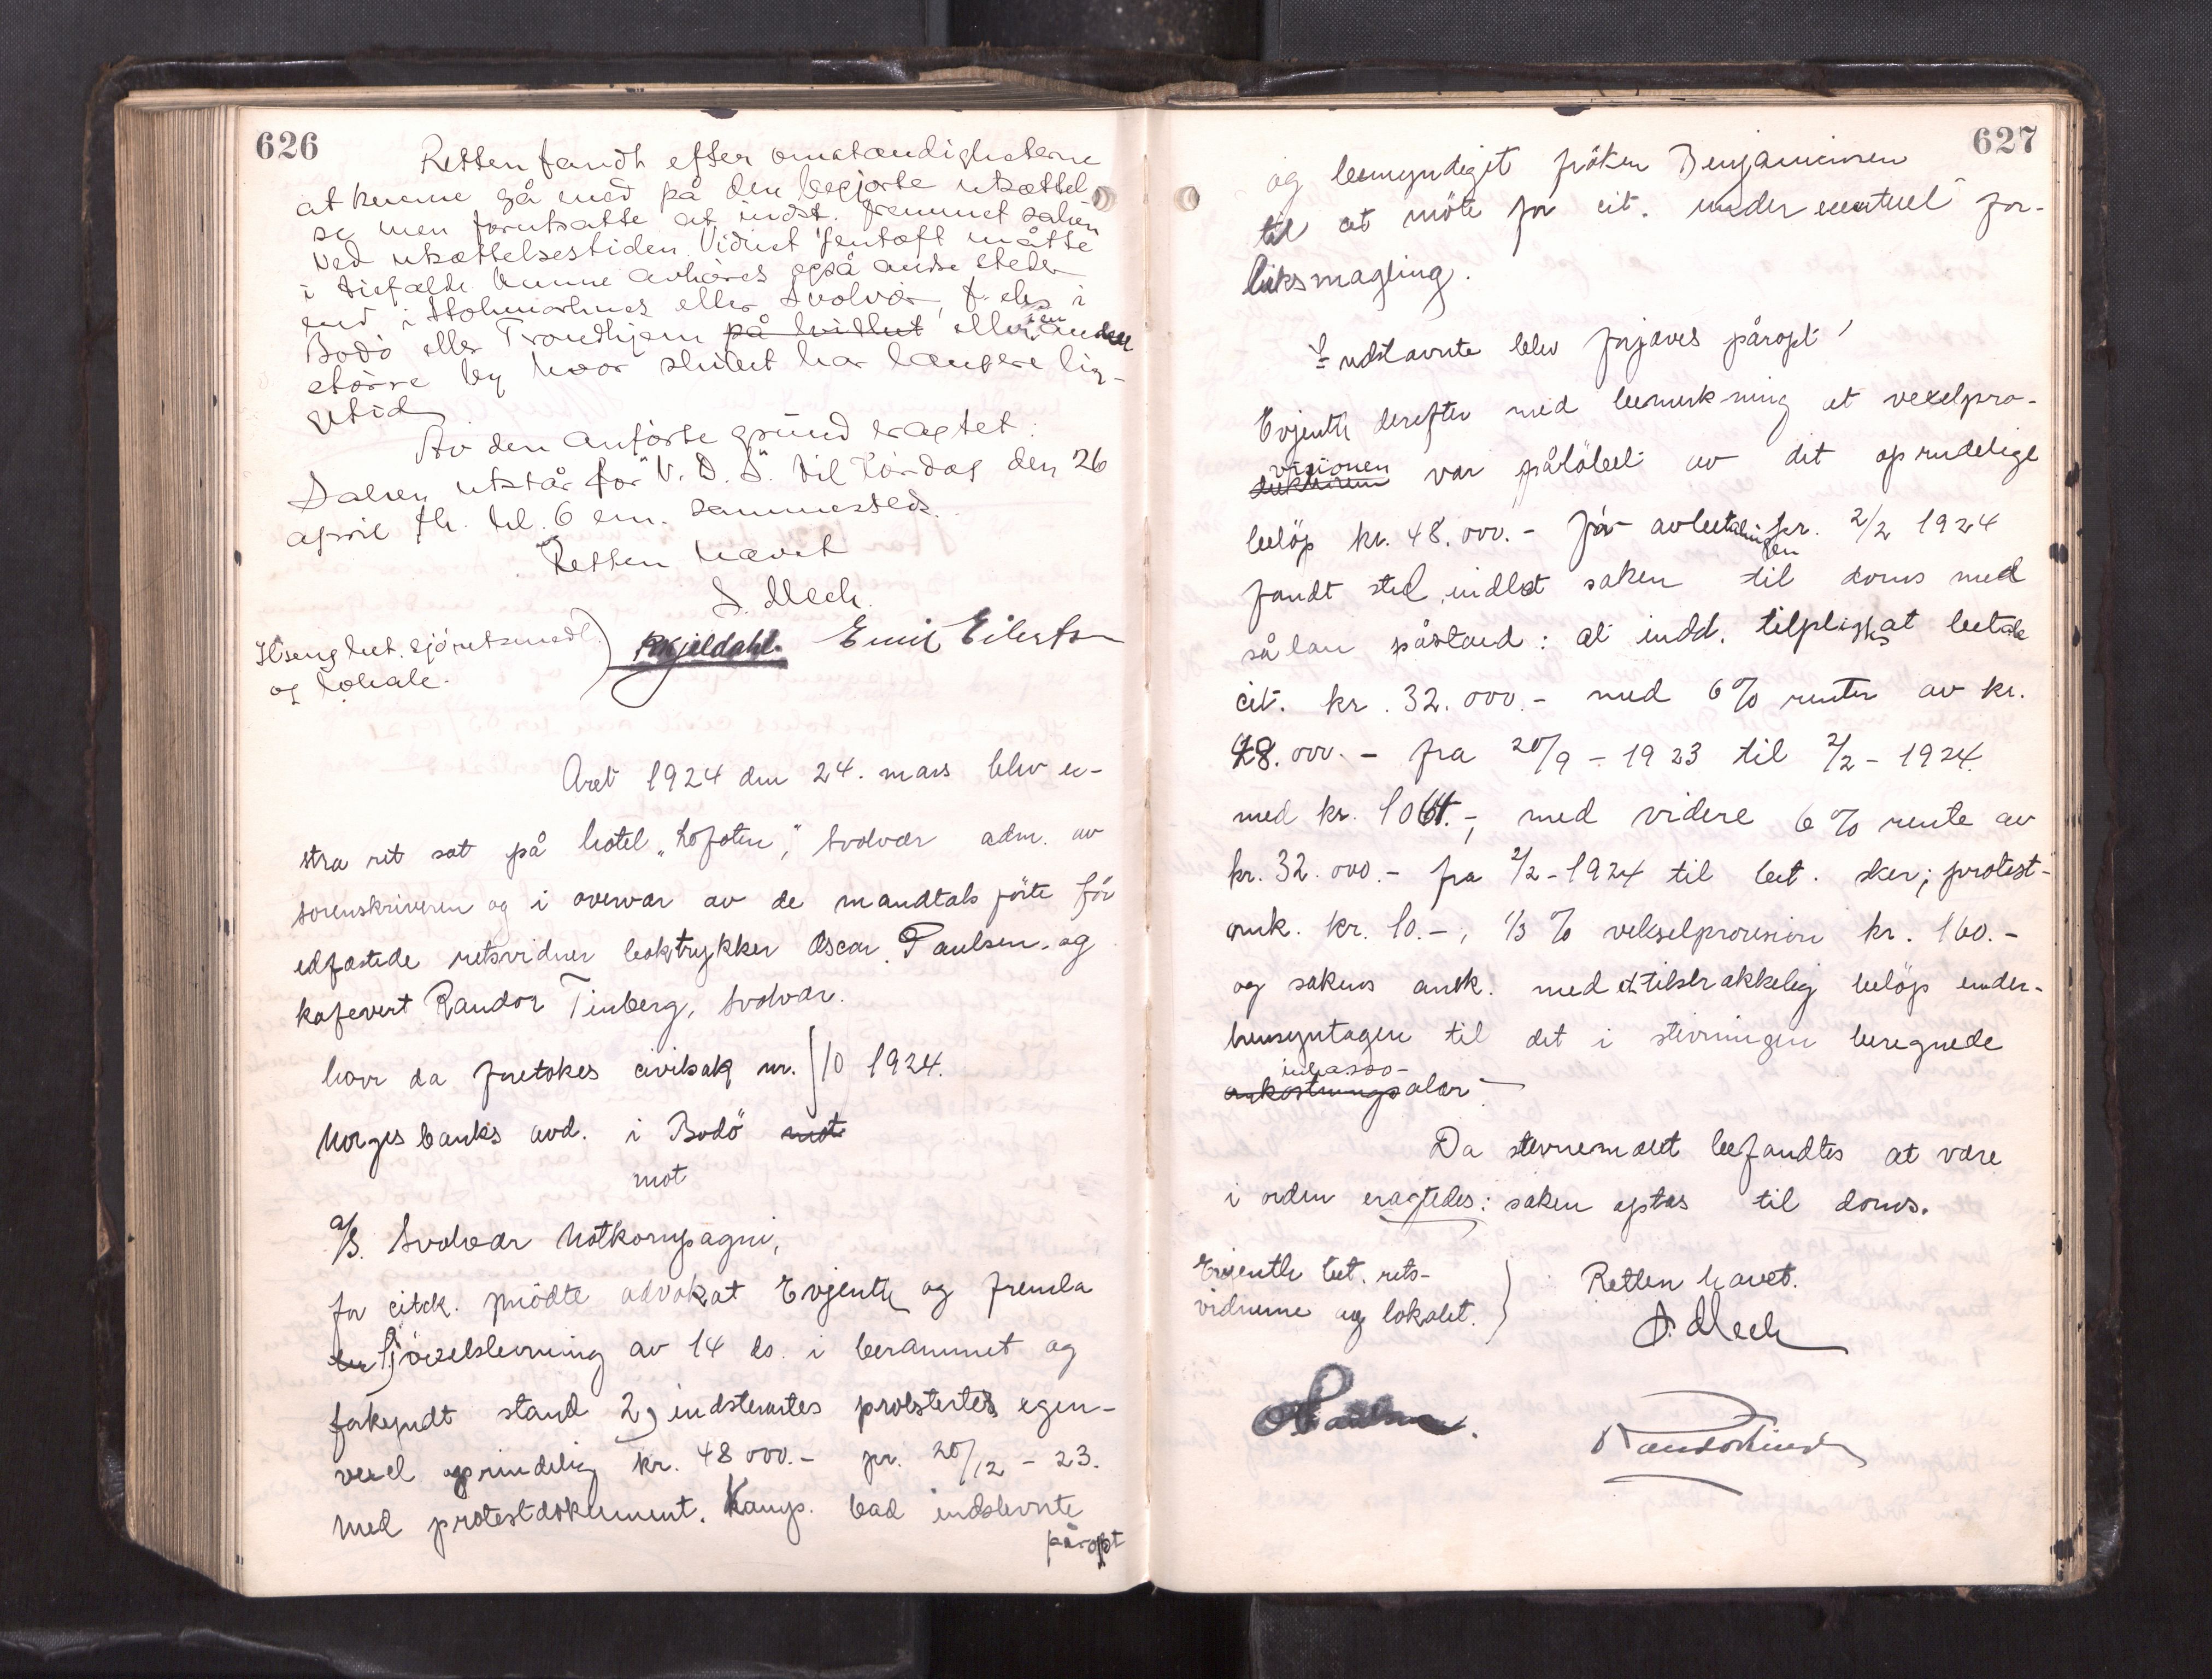 626
Retten fandt efter omstændigheterne
at kunne gå med på den begjærte utsættel-
se men forutsatte at indst. fremmet saken
ved utsættelsestiden. Vidnet Jentoft måtte
i tilfælde kunne avhøres også andre steder
end i Stokmarknes eller Svolvær, f. eks i
Bodö eller Trondhjem på hvilket eller i en anden
större by hvor skibet har længere lig-
getid
Av den anförte grund eragtet:
Saken utstår for "V. D. S". til Lördag den 26
april fk. kl. 6 em. sammesteds.
Retten hævet
S. Mech.
Hseng bet. sjöretsmedl.
og lokale.
P Kjeldahl. Emil Eilertsen
Året 1924 den 24. mars blev ek-
stra ret sat på hotel "Lofoten", Svolvær adm. av
sorenskriveren og i overvær av de mandtals förte för
edfæstede retsvidner boktrykker Oscar Paulsen og
kafevert Randor Tinberg, Svolvær.
hvor da foretokes civilsak nr. 10 1924.
Norges banks avd. i Bodö mot
mot
a/s. Svolvær Notkompagni,
for citck. mödte advokat Evjenth og fremla
en 1) vexelstevning av 14 ds. i berammet og
forkyndt stand 2) indstevntes protestertes egen-
vexel oprindelig kr. 48 000.- pr. 20/12 - 23.
med protestdokument. Komp. bad indstevnte
påropt
627
og bemyndiget fröken Benjaminsen
til at möte for cit. under eventuel for-
liksmægling.
Indstævnte blev forgjæves påropt!
Evjenth derefter med bemerkning at vexelpro-
visionen
var påløbet av det oprindelige
belöp kr. 48.000.- för avbetalingen pr. 2/2 1924
fandt sted, indlot saken til doms med
sålan påstand: at indd. tilpligtes at betale
cit. kr. 32.000.- med 6% renter av kr.
48.000.- fra 20/9 - 1923 til 2/2 - 1924.
med kr. 1064.-, med videre 6% rente av
kr. 32.000.- fra 2/2 - 1924 til bet. sker; protest-
omk. kr. 10.-, 1/3 % vekselprovision kr. 160.-
og sakens omk. med et tilstrækkelig belöp under
hensyntagen til det i stevningen beregnede
inkasso-
omkostningsalær.-
Da stevnemålet befandtes at være
i orden eragtedes: saken optas til doms.
Evjenth bet. rets-
vidnerne og lokalet.
Retten hævet.
S. Mech
O Paulsen.
Randor Tinberg